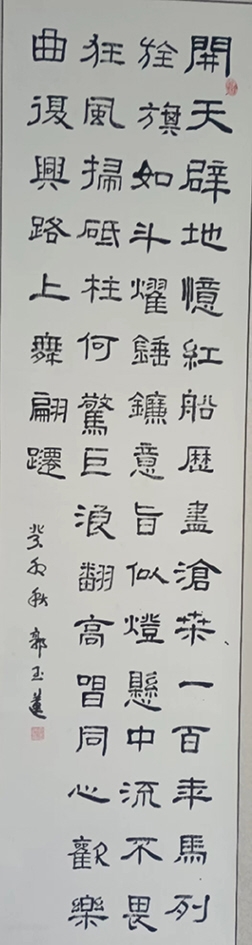 開天辟地憶紅船歷盡滄桒一百年馬列
旌旗如斗燿錘鐮意旨似燈懸中流不畏
狂風掃砥柱何驚巨浪翻高唱同心歡樂
曲復興路上舞翩躚
癸卯秋 郭玉蓮